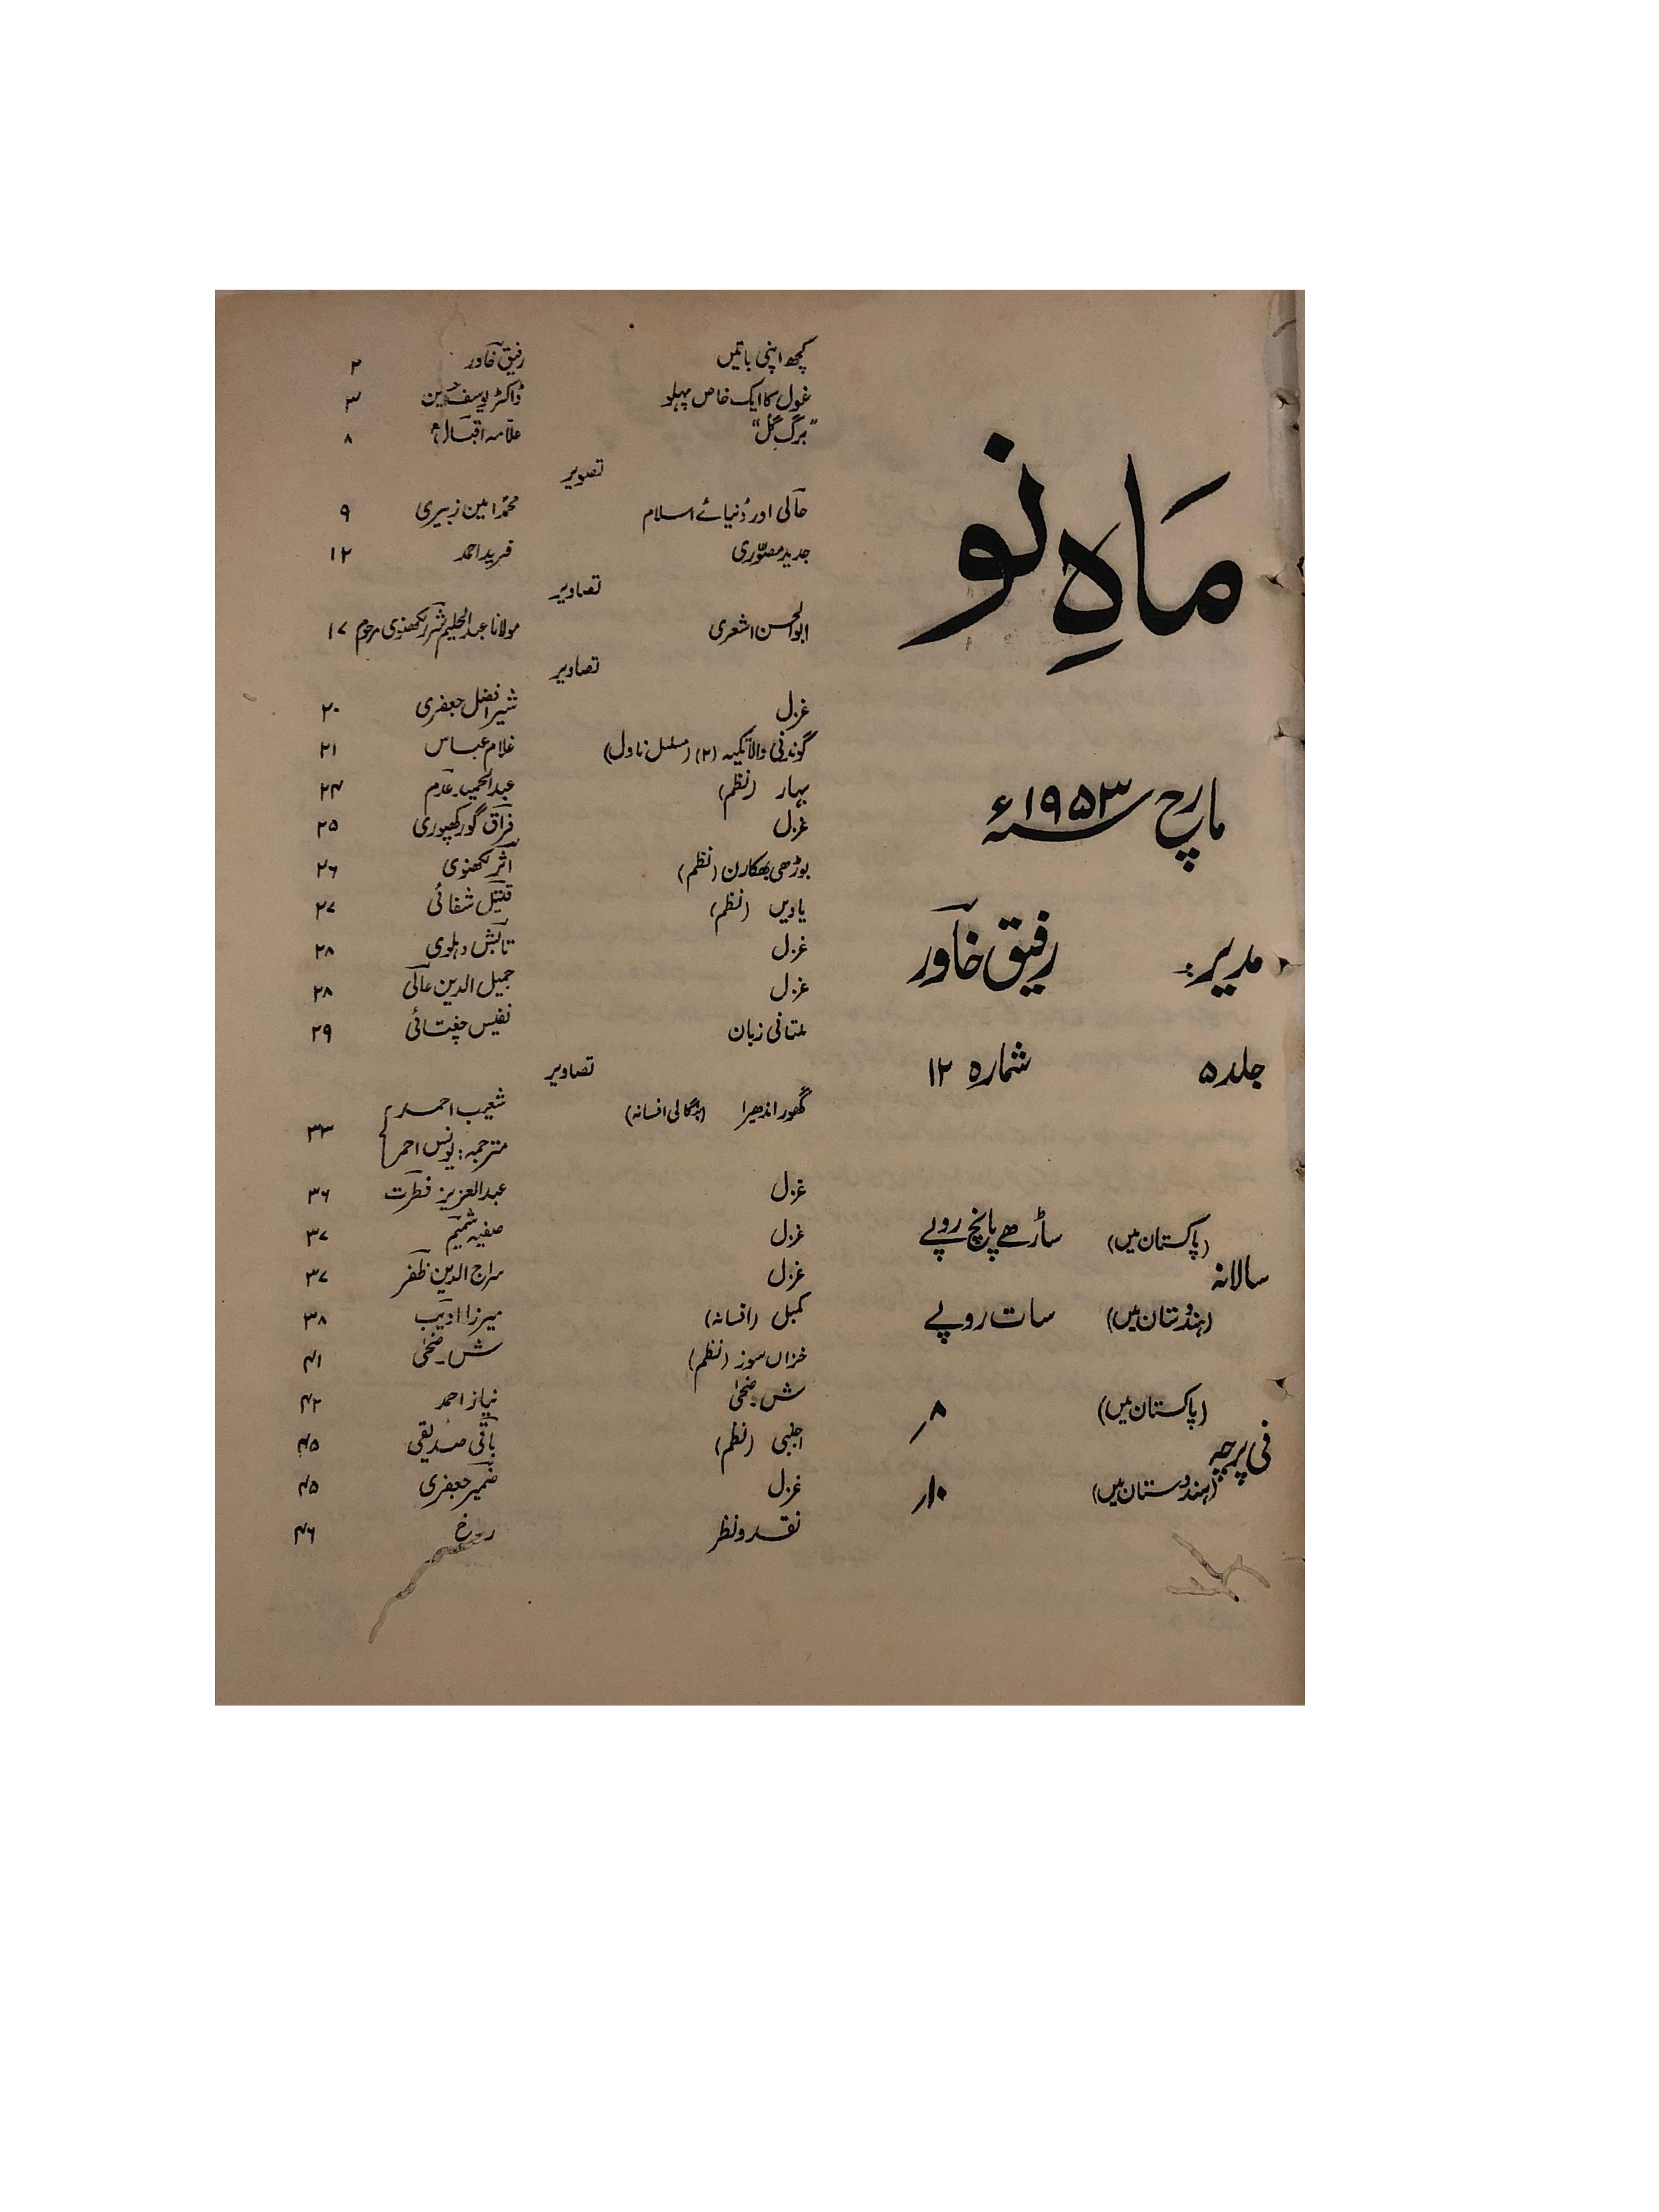 ماہِ نو
مارچ ۱۹۵۳ء
مدیر: رفیق خاور
جلد ۵ شمارہ ۱۲
سالانہ
(پاکستان میں) ساڑھے پانچ روپے
(ہندوستان میں) سات روپے
فی پرچہ
(پاکستان میں) ۸ر
(ہندوستان میں) ۱۰ر
کچھ اپنی باتیں رفیق خاور ۲
غزل کا ایک خاص پہلو ڈاکٹر یوسف حسین ۳
"برگِ گل" علامہ اقبالؒ ۸
تصویر
حالی اور دُنیائے اسلام محمد امین زبیری ۹
جدید مصوّری فرید احمد ۱۲
تصاویر
ابوالحسن اشعری مولانا عبدالحلیم شرر لکھنوی مرحوم ۱۷
تصاویر
غزل شیر افضل جعفری ۲۰
گوندنی والا تکیہ (۲) (مسلسل ناول) غلام عباس ۲۱
بہار (نظم) عبدالحمید عدم ۲۴
غزل فراق گورکھپوری ۲۵
بوڑھی بھکارن (نظم) اثر لکھنوی ۲۶
یادیں (نظم) قتیل شفائی ۲۷
غزل تابش دہلوی ۲۸
غزل جمیل الدین عالی ۲۸
ملتانی زبان نفیس چغتائی ۲۹
تصاویر
گھور اندھیرا (بنگالی افسانہ) شعیب احمد
مترجمہ: یونس احمر ۳۳
غزل عبدالعزیز فطرت ۳۶
غزل صفیہ شمیم ۳۷
غزل سراج الدین ظفر ۳۷
کمبل (افسانہ) میرزا ادیب ۳۸
خزاں سوز (نظم) ش۔ضحیٰ ۴۱
ش۔ضحیٰ نیاز احمد ۴۲
اجنبی (نظم) باقی صدیقی ۴۵
غزل ضمیر جعفری ۴۵
نقد و نظر ۴۶